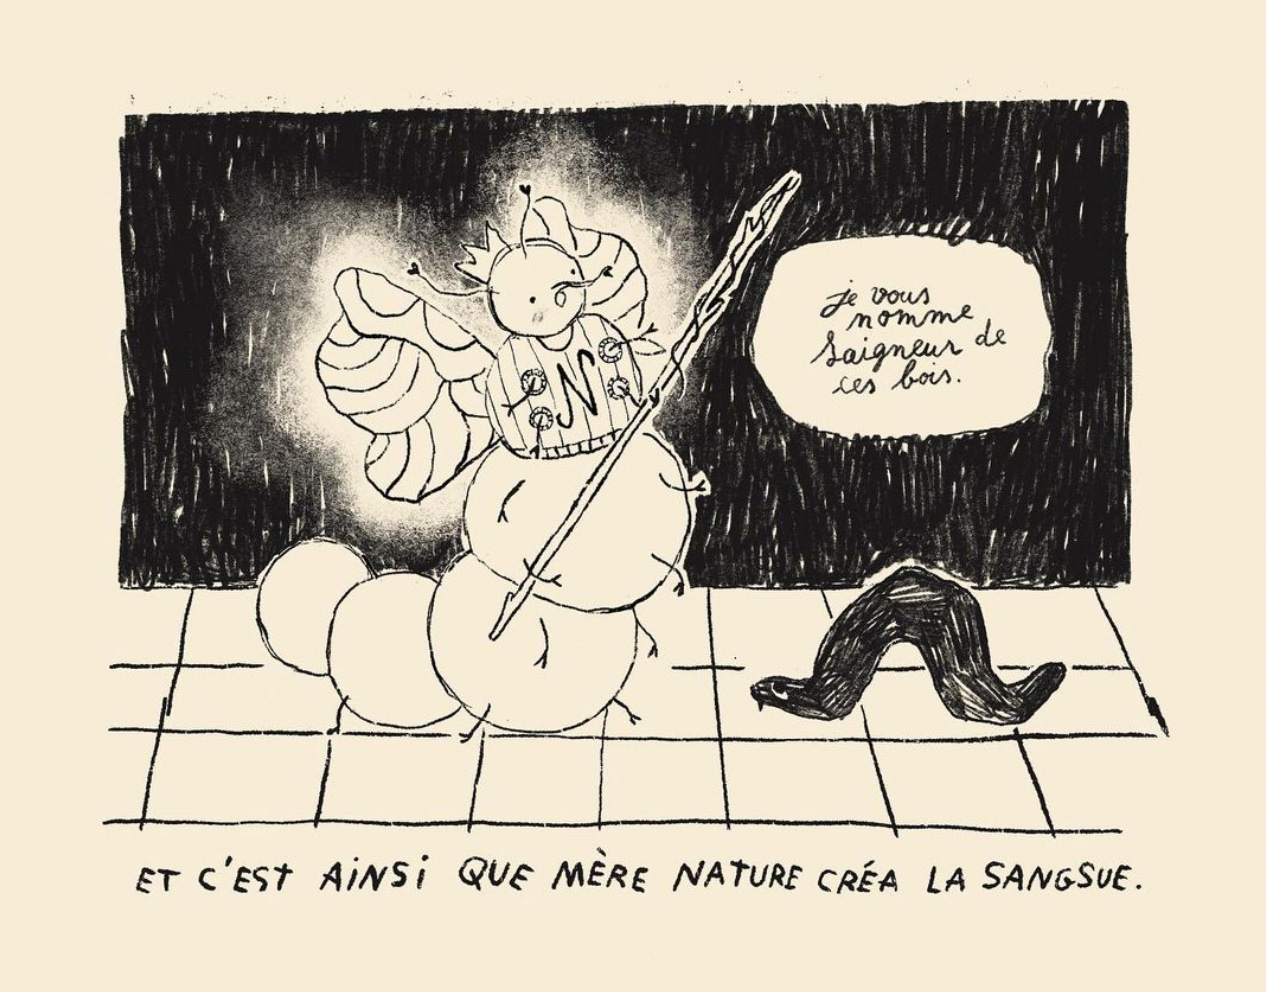 N
je vous
nomme
Saigneur de
ces bois.
ET C'EST AINSI QUE MÈRE NATURE CRÉA LA SANGSUE.